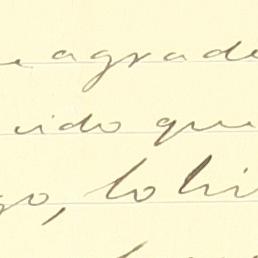 e agrade
cido que
go, lo hi